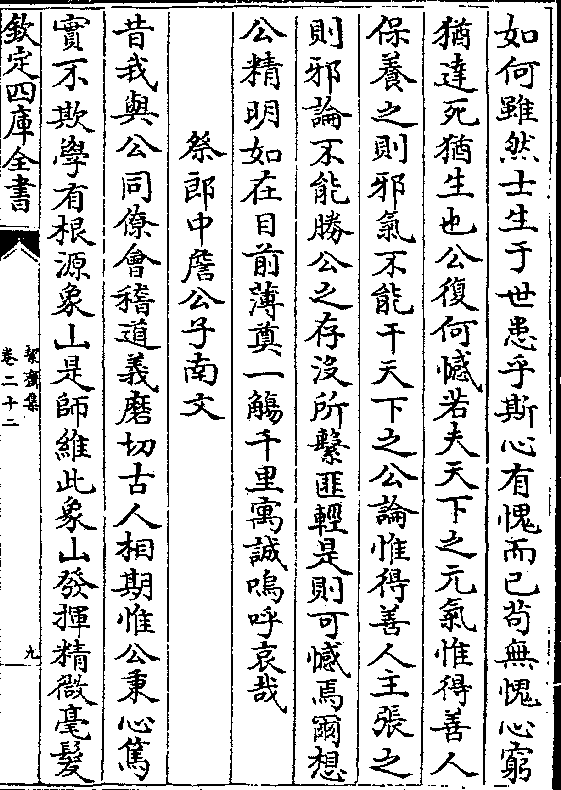 如何雖然士生于世患乎斯心有愧而已茍無愧心窮
猶達死猶生也公復何憾若夫天下之元氣惟得善人
保養之則邪氣不能干天下之公論惟得善人主張之
則邪論不能勝公之存沒所繫匪輕是則可憾焉爾想
公精明如在目前薄奠一觴千里寓誠嗚呼哀哉
祭郎中詹公子南文
昔我與公同僚會稽道義磨切古人相期惟公秉心篤
實不欺學有根源象山是師維此象山發揮精微毫髮
欽定四庫全書
絜齋集
卷二十二
九